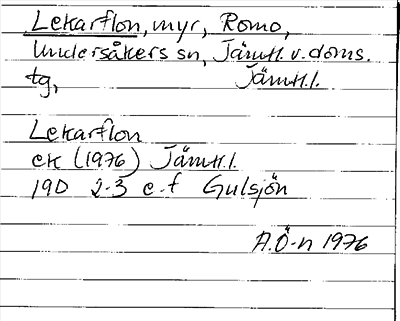 Lekarflon, myr, Romo,
Undersåkers sn, Jämtl. v. doms.
tg, Jämtl.l.
Lekarflon
ek (1976) Jämtl.l.
19D 2-3 e-f Gulsjön
A.Ö-n 1976